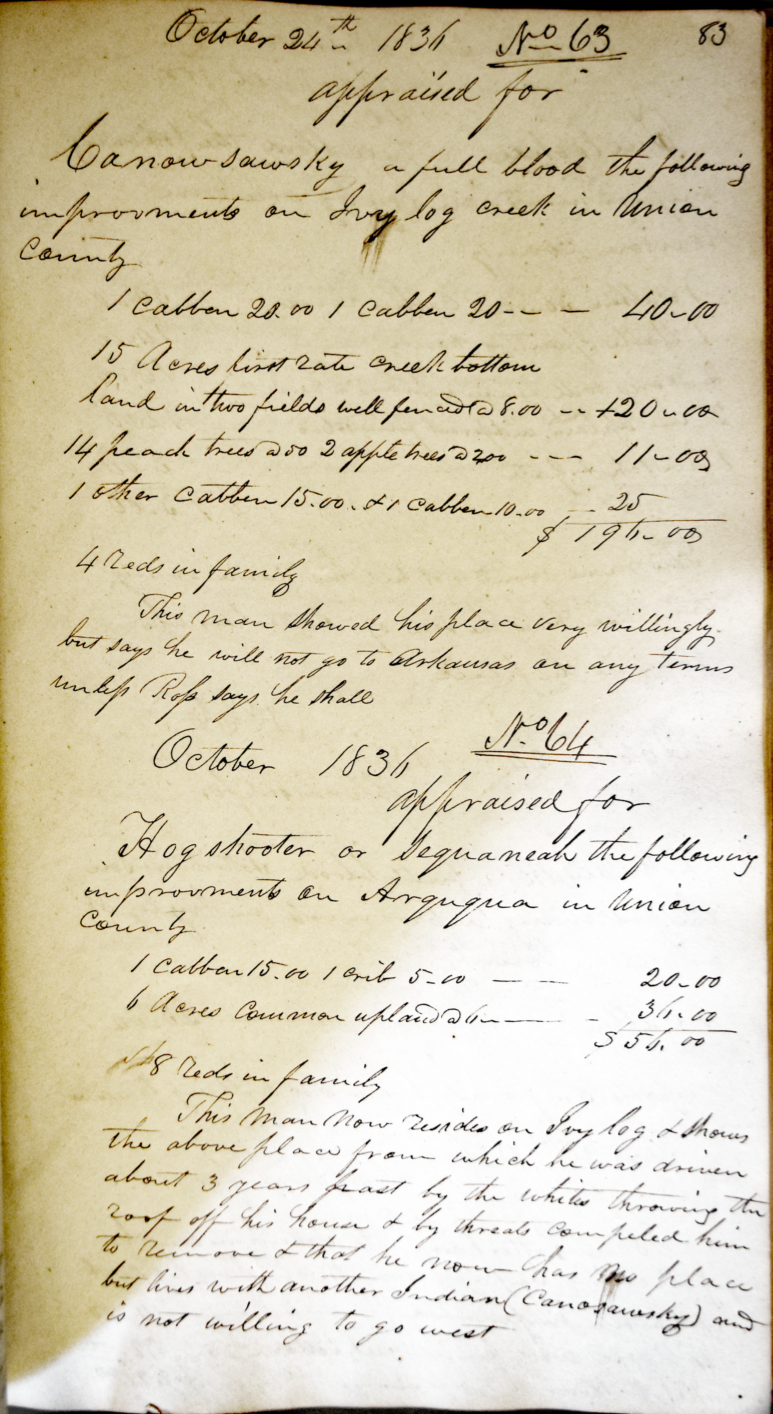 October 24th 1836 No 63 83
appraised for
Canowsawsky a full blood the following
improvments on Ivy log creek in Union
County
1 cabben 20.00 1 cabben 20-- — 40-00
15 Acres first rate creek bottom
land in two fields well fenced @ 8.00 -- 120-00
14 peach trees @ 50 2 apple trees @ 2.00 --- 11-00
1 other cabben 15.00. & 1 cabben 10.00 - 25
$ 196-00
4 reds in family
This man showed his place very willingly
but says he will not go to Arkansas on any terms
unless Ross says he shall
October 1836 No 64
appraised for
Hog shooter or Sequaneah the following
improvments on Arguqua in Union
County
1 cabban 15.00 1 crib 5-00 — — 20-00
6 Acres Common upland @ 6 — - 36.00
$ 56.00
8 reds in family
This man now resides on Ivy log & shows
the above place from which he was driven
about 3 years past by the whites throwing the
roof off his house & by threats compeled him
to remove & that he now has no place
but lives with another Indian (Canosawsky) and
is not willing to go west